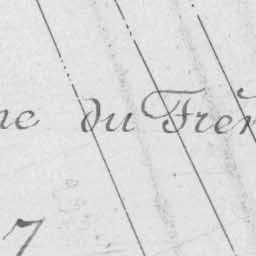 ne du Frên
7